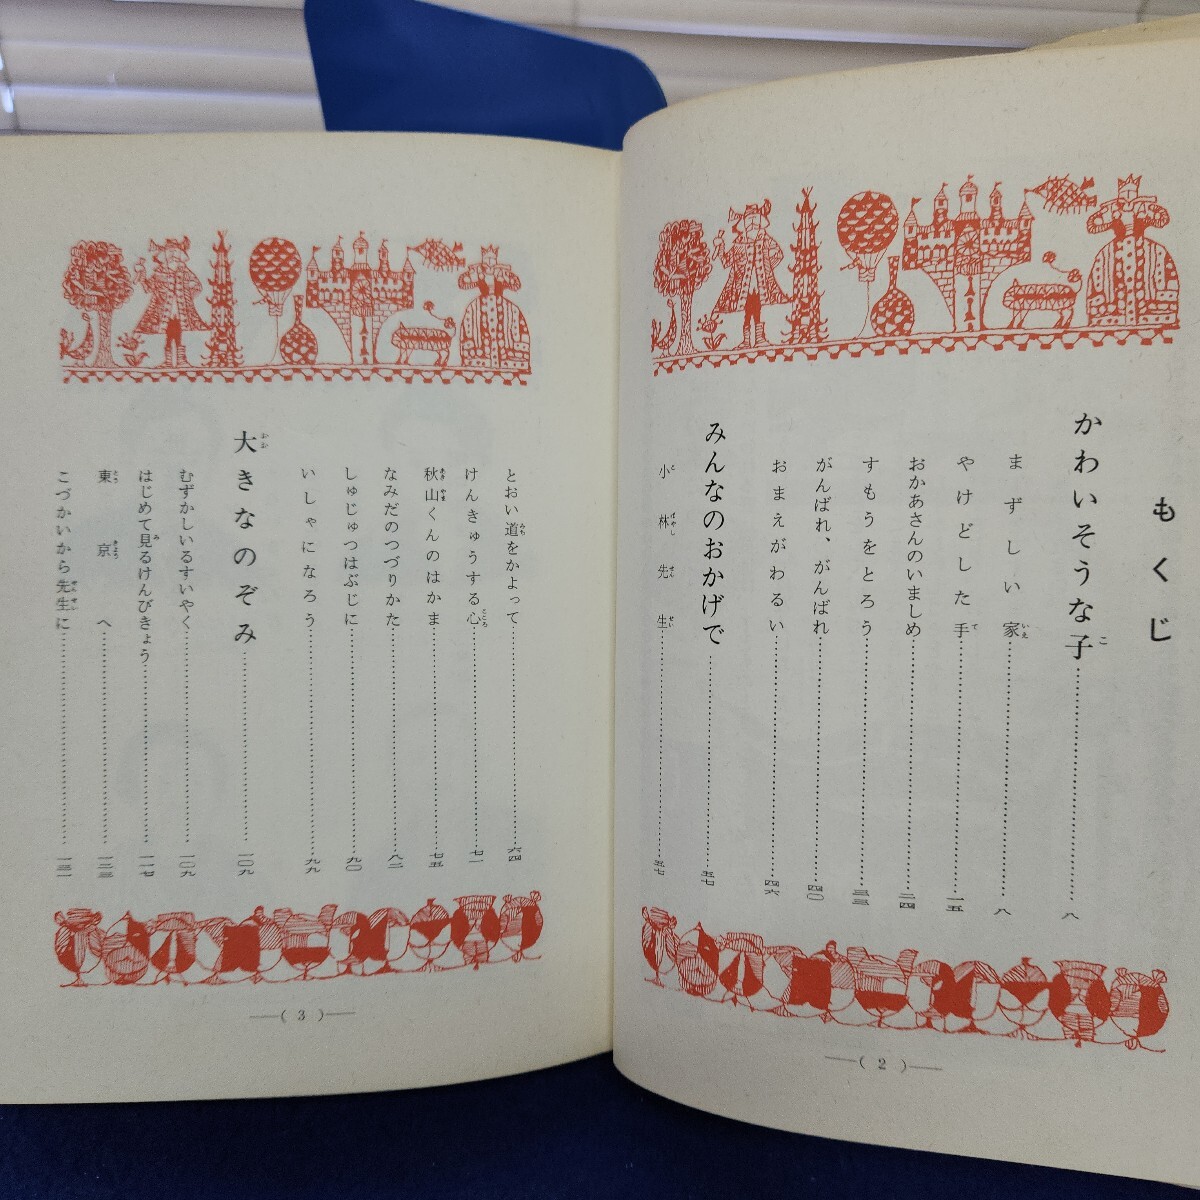 もくじ
かわいそうな子 八
まずしい家 八
やけどした手 一五
おかあさんのいましめ 二四
すもうをとろう 三三
がんばれ、がんばれ 四〇
おまえがわるい 四六
みんなのおかげで 五七
小林先生 五七
—( 2 )—
とおい道をかよって 六四
けんきゅうする心 七一
秋山くんのはかま 七五
なみだのつづりかた 八二
しゅじゅつはぶじに 九〇
いしゃになろう 九九
大きなのぞみ 一〇九
むずかしいるすいやく 一〇九
はじめて見るけんびきょう 一一七
東京へ 一二三
こづかいから先生に 一三一
—( 3 )—